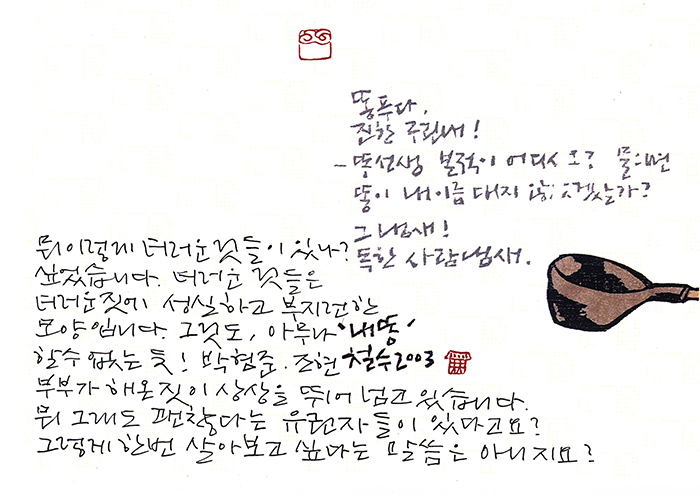 똥푸다.
진한 구린내!
- 똥선생 본적이 어디시오? 물으면
똥이 내이름 대지 않겠는가?
그 냄새!
독한 사람냄새.
뭐 이렇게 더러운 것들이 있나?
싶었습니다. 더러운 것들은
더러운짓에 성실하고 부지런한
모양입니다. 그것도, 아무나
할수 없는 듯! 박형준. 조현
부부가 해온 짓이 상상을 뛰어 넘고 있습니다.
뭐 그래도 괜찮다는 유권자들이 있다고요?
그렇게 한번 살아보고 싶다는 말씀은 아니지요?
'내똥'
철수2003